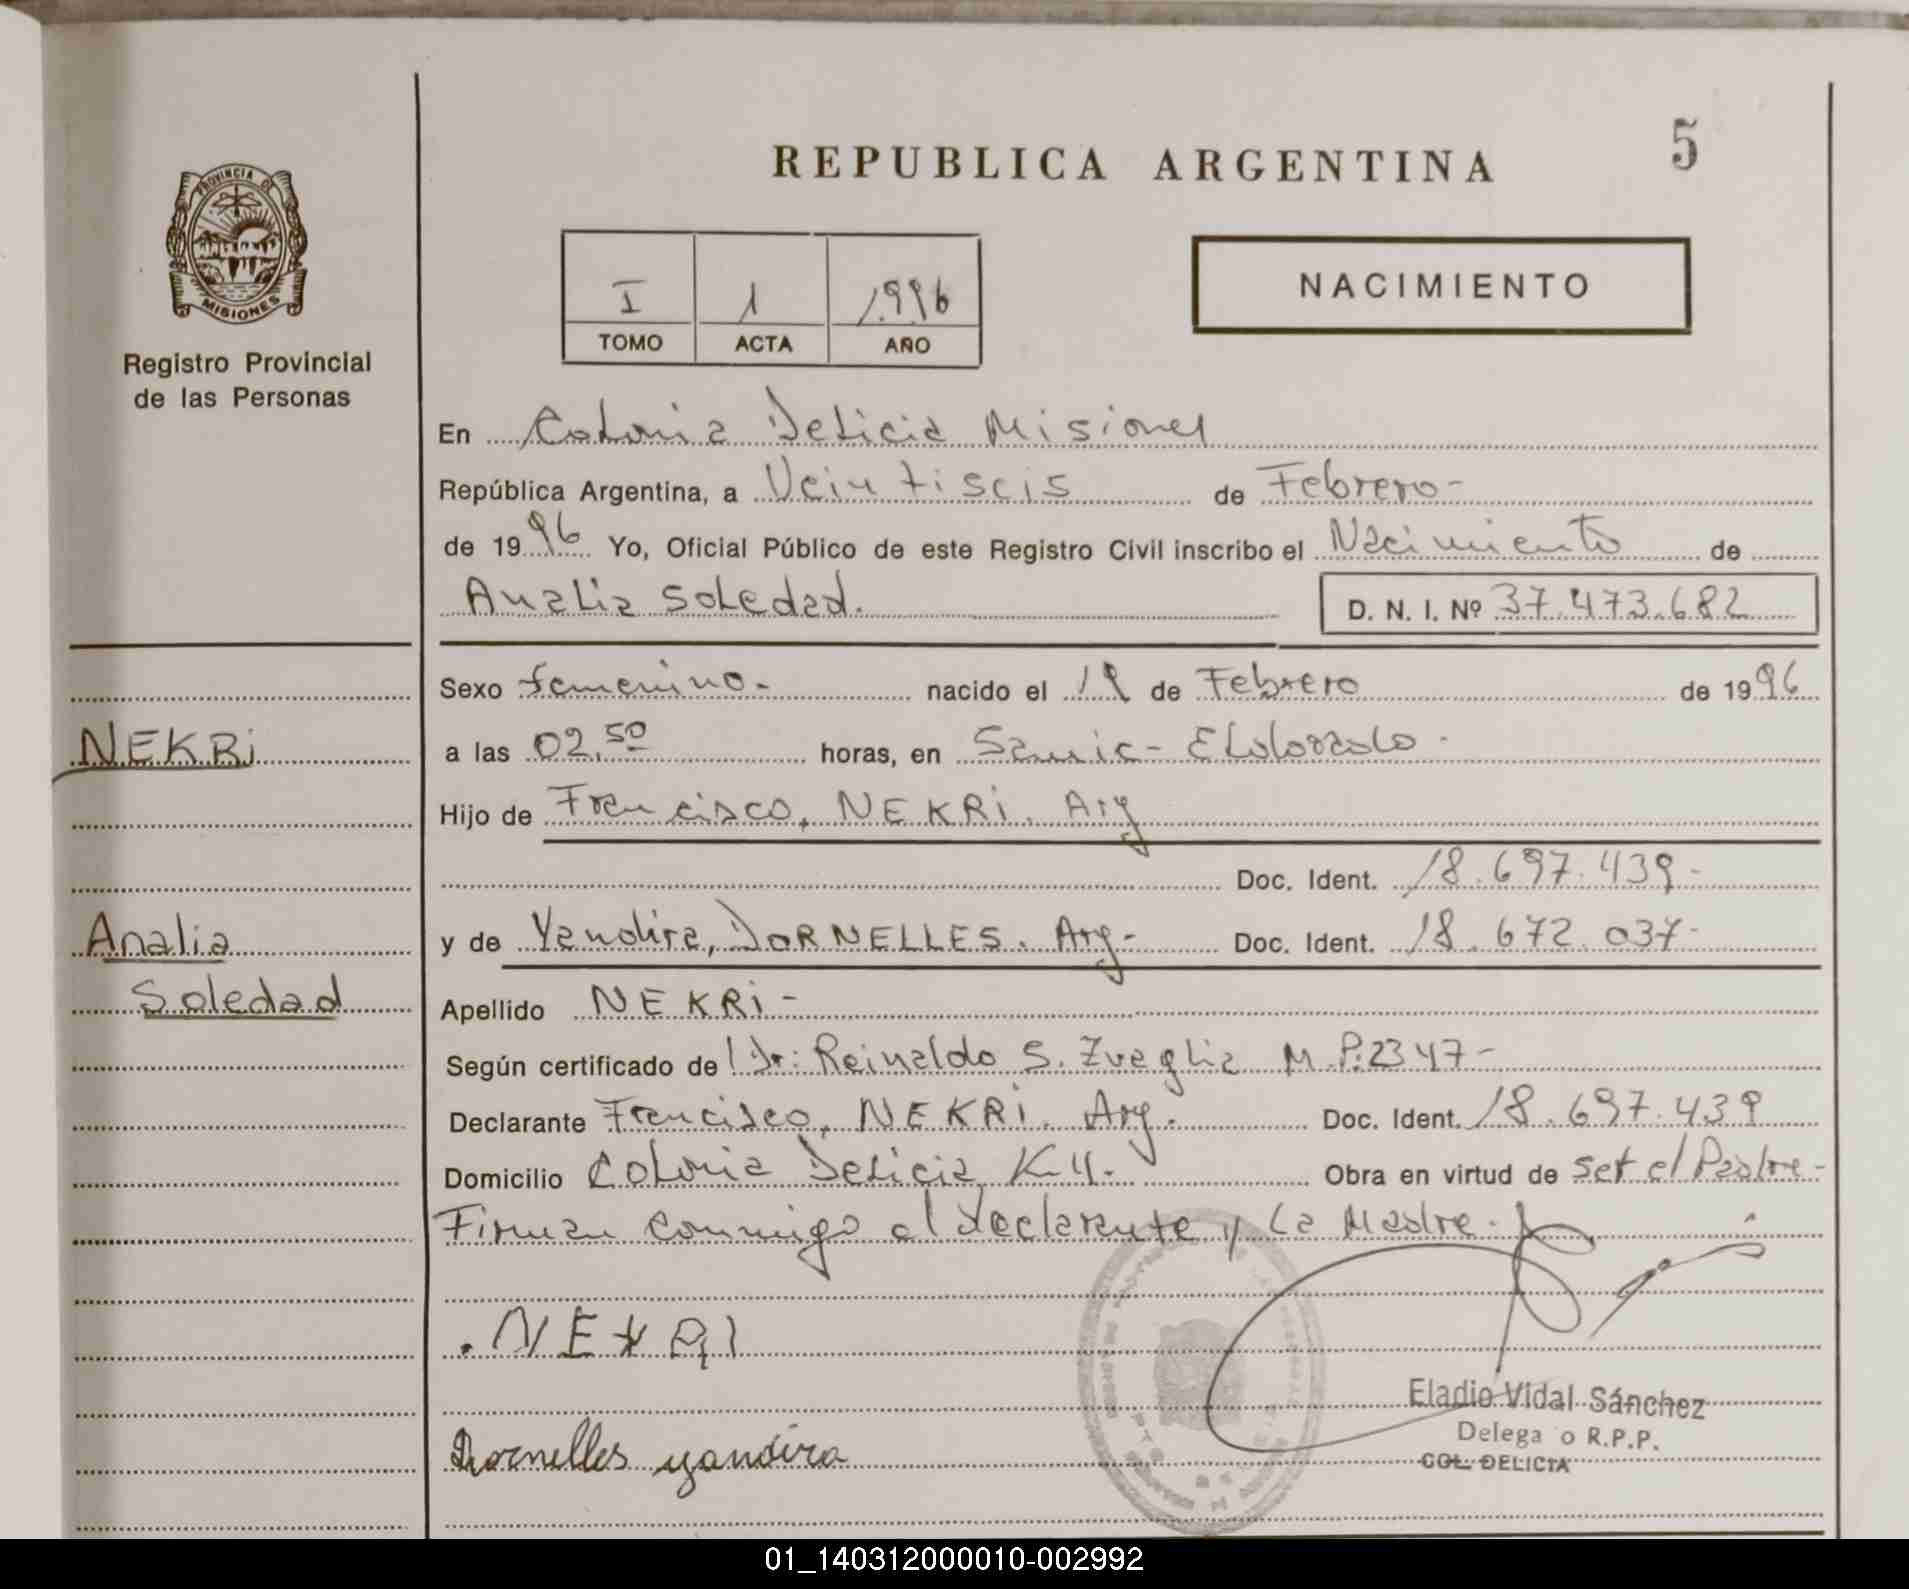 REPUBLICA ARGENTINA
5
PROVINCIA DE
MISIONES
Registro Provincial
de las Personas
I 1 1996
TOMO ACTA AÑO
NACIMIENTO
En Colonia Delicia Misiones
República Argentina, a Veintiseis de Febrero-
de 1996 Yo, Oficial Público de este Registro Civil inscribo el Nacimiento de
Analia Soledad. D. N. I. Nº 37.473.682
Sexo femenino- nacido el 19 de Febrero de 1996
NEKRi
a las 02.50 horas, en Samic- ELdorado-
Hijo de Francisco, NEKRi. Arg
Doc. Ident. 18.697.439-
Analia
y de Yandira, DORNELLES. Arg- Doc. Ident. 18.672.037-
Soledad
Apellido NEKRi-
Según certificado de Dr: Reinaldo S. Zuaglia M.P.2347-
Declarante Francisco, NEKRi. Arg. Doc. Ident. 18.697.439
Domicilio Colonia Delicia K.4. Obra en virtud de ser el Padre-
Firman conmigo el declarante y La Madre.
.NEKRI
Eladio Vidal Sánchez
Delega o R.P.P.
COL. DELICIA
Dornelles yandira
01_140312000010-002992